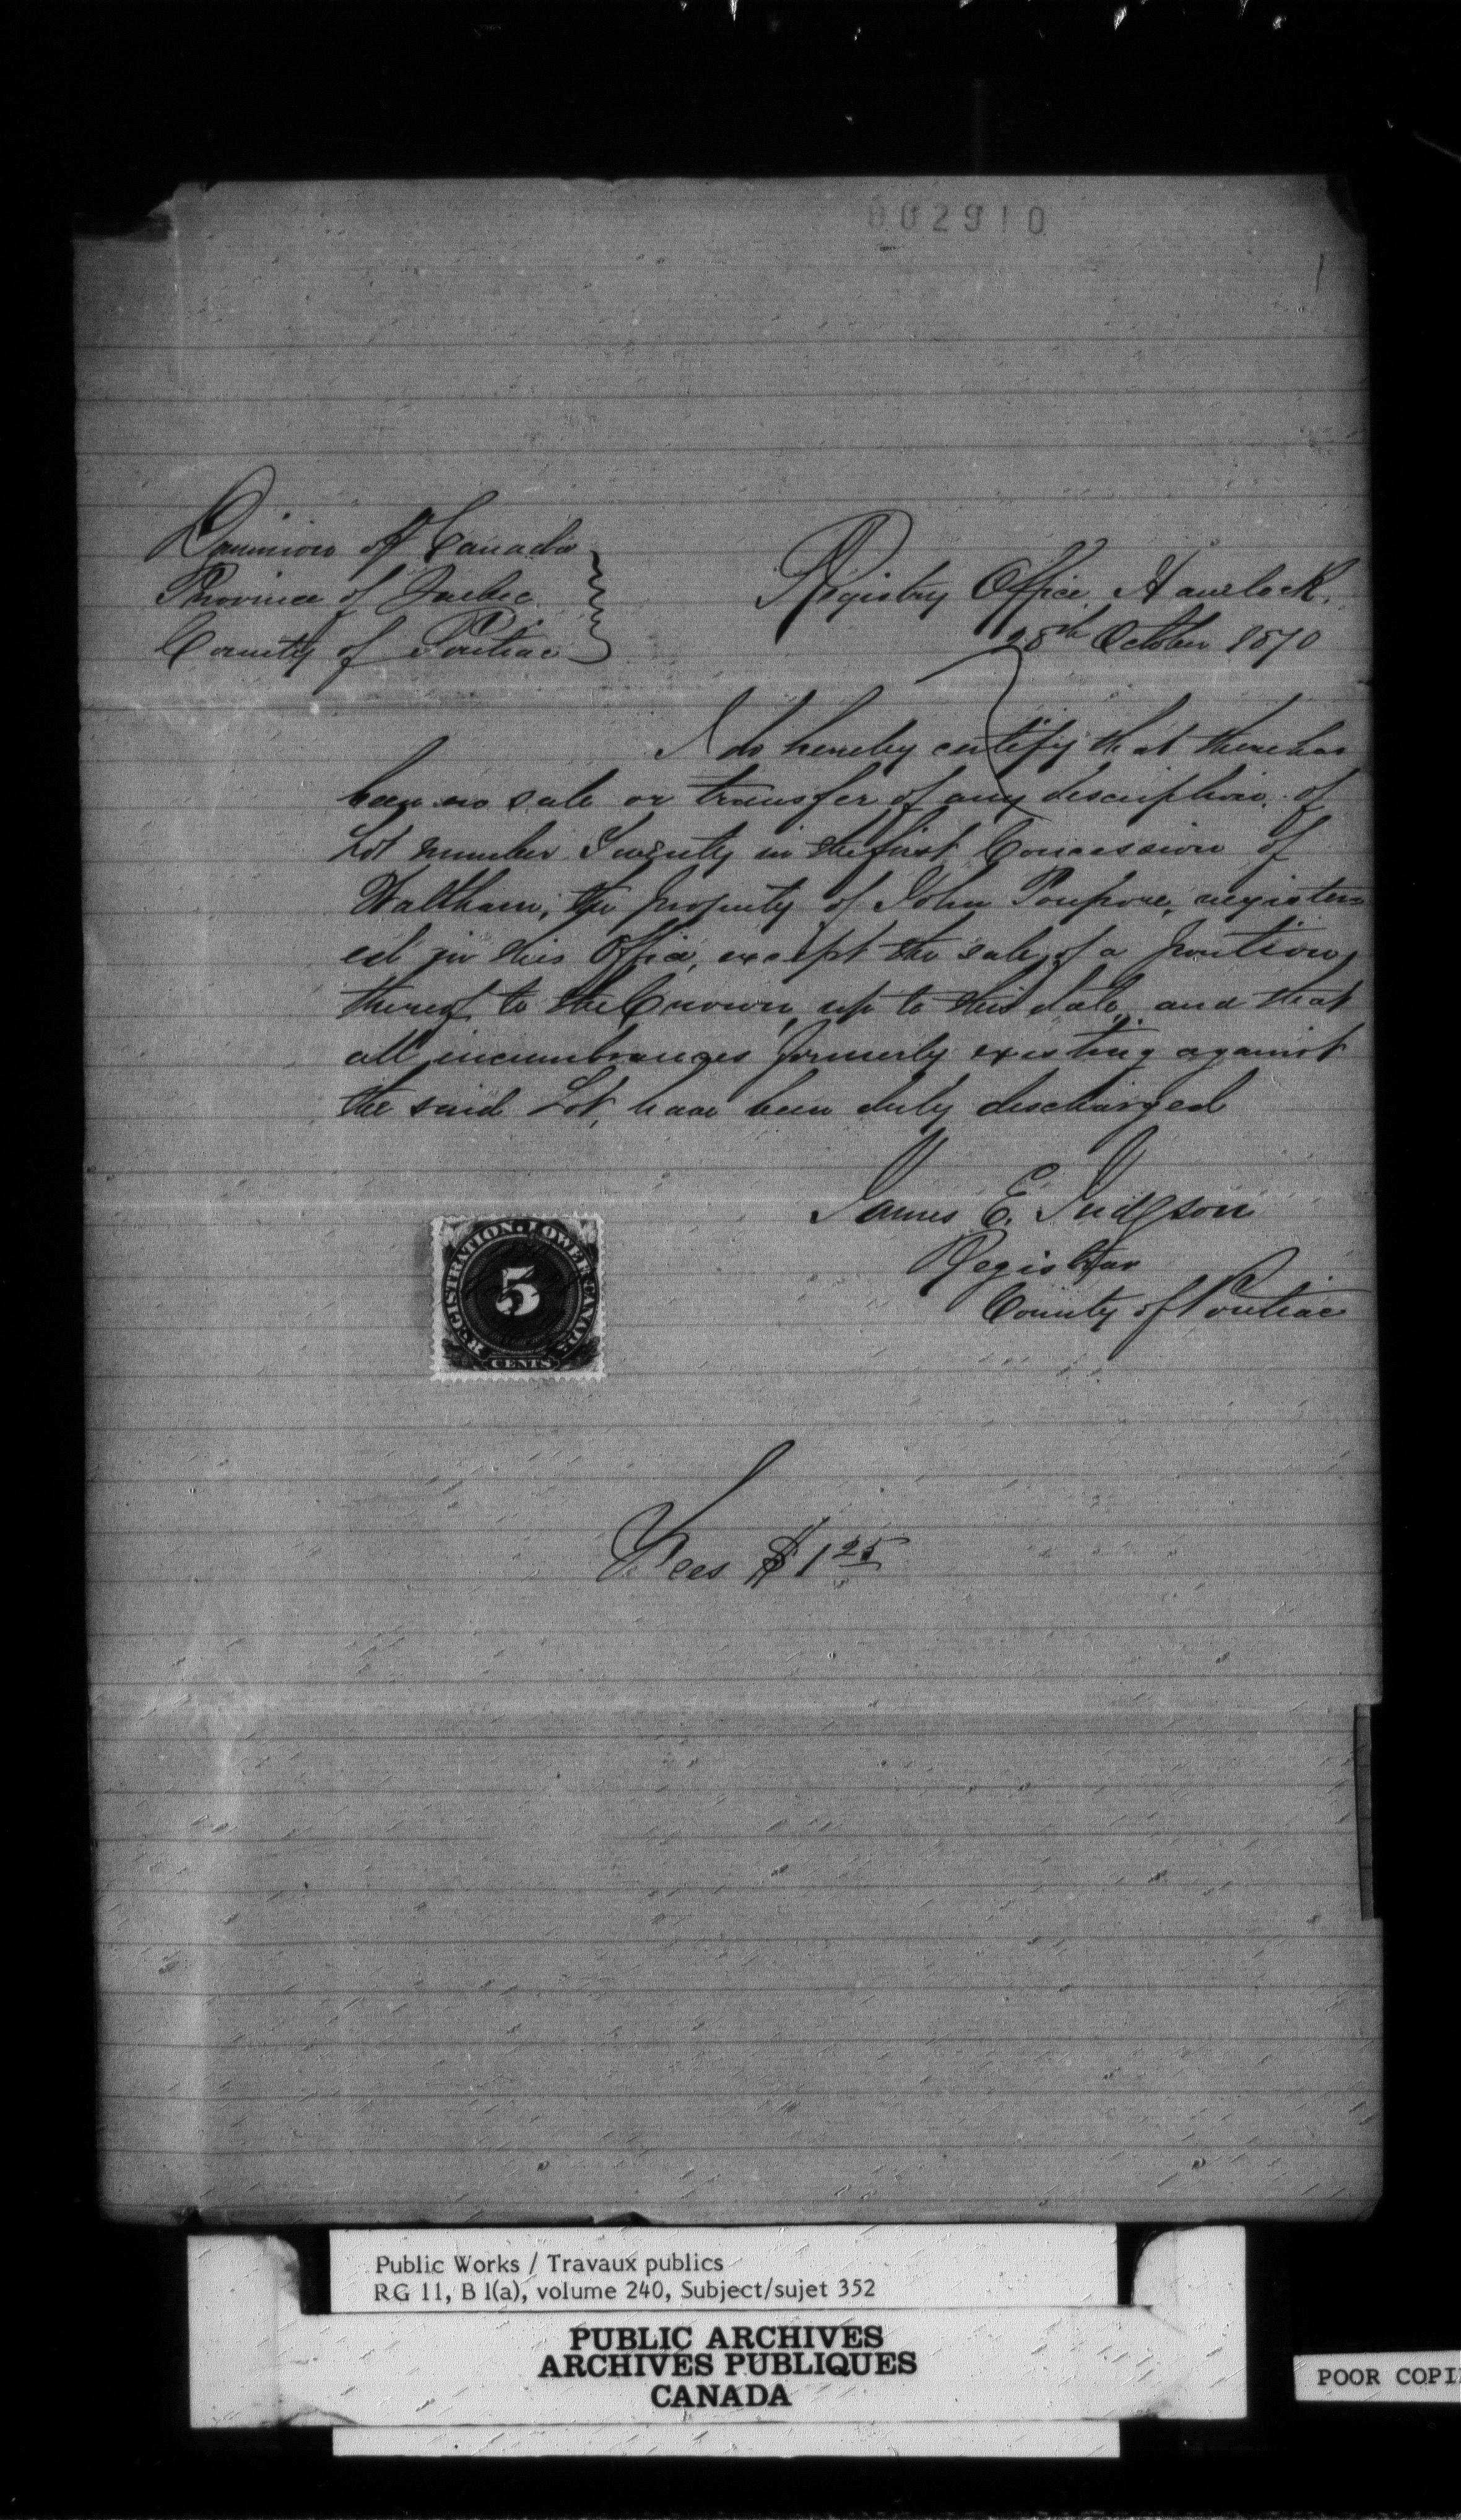 002910
Dominion of Canada
Province of Quebec
County of Pontiac
Registry Office, Havelock.
28th October 1870
I do hereby certify that there has
been no sale or transfer of any description, of
Lot number Twenty in the first Concession of
Waltham, the property of John Poupore, register=
ed in this Office, except the sale of a portion
thereof to the Crown, up to this date, and that
all incumbrances formerly existing against
the said Lot, have been duly discharged
James E. Judgson
Registrar
County of Pontiac
REGISTRATION · LOWER CANADA
5
CENTS
Fees $1 25
Public Works / Travaux publics
RG 11, B 1(a), volume 240, Subject/sujet 352
PUBLIC ARCHIVES
ARCHIVES PUBLIQUES
CANADA
POOR COPI